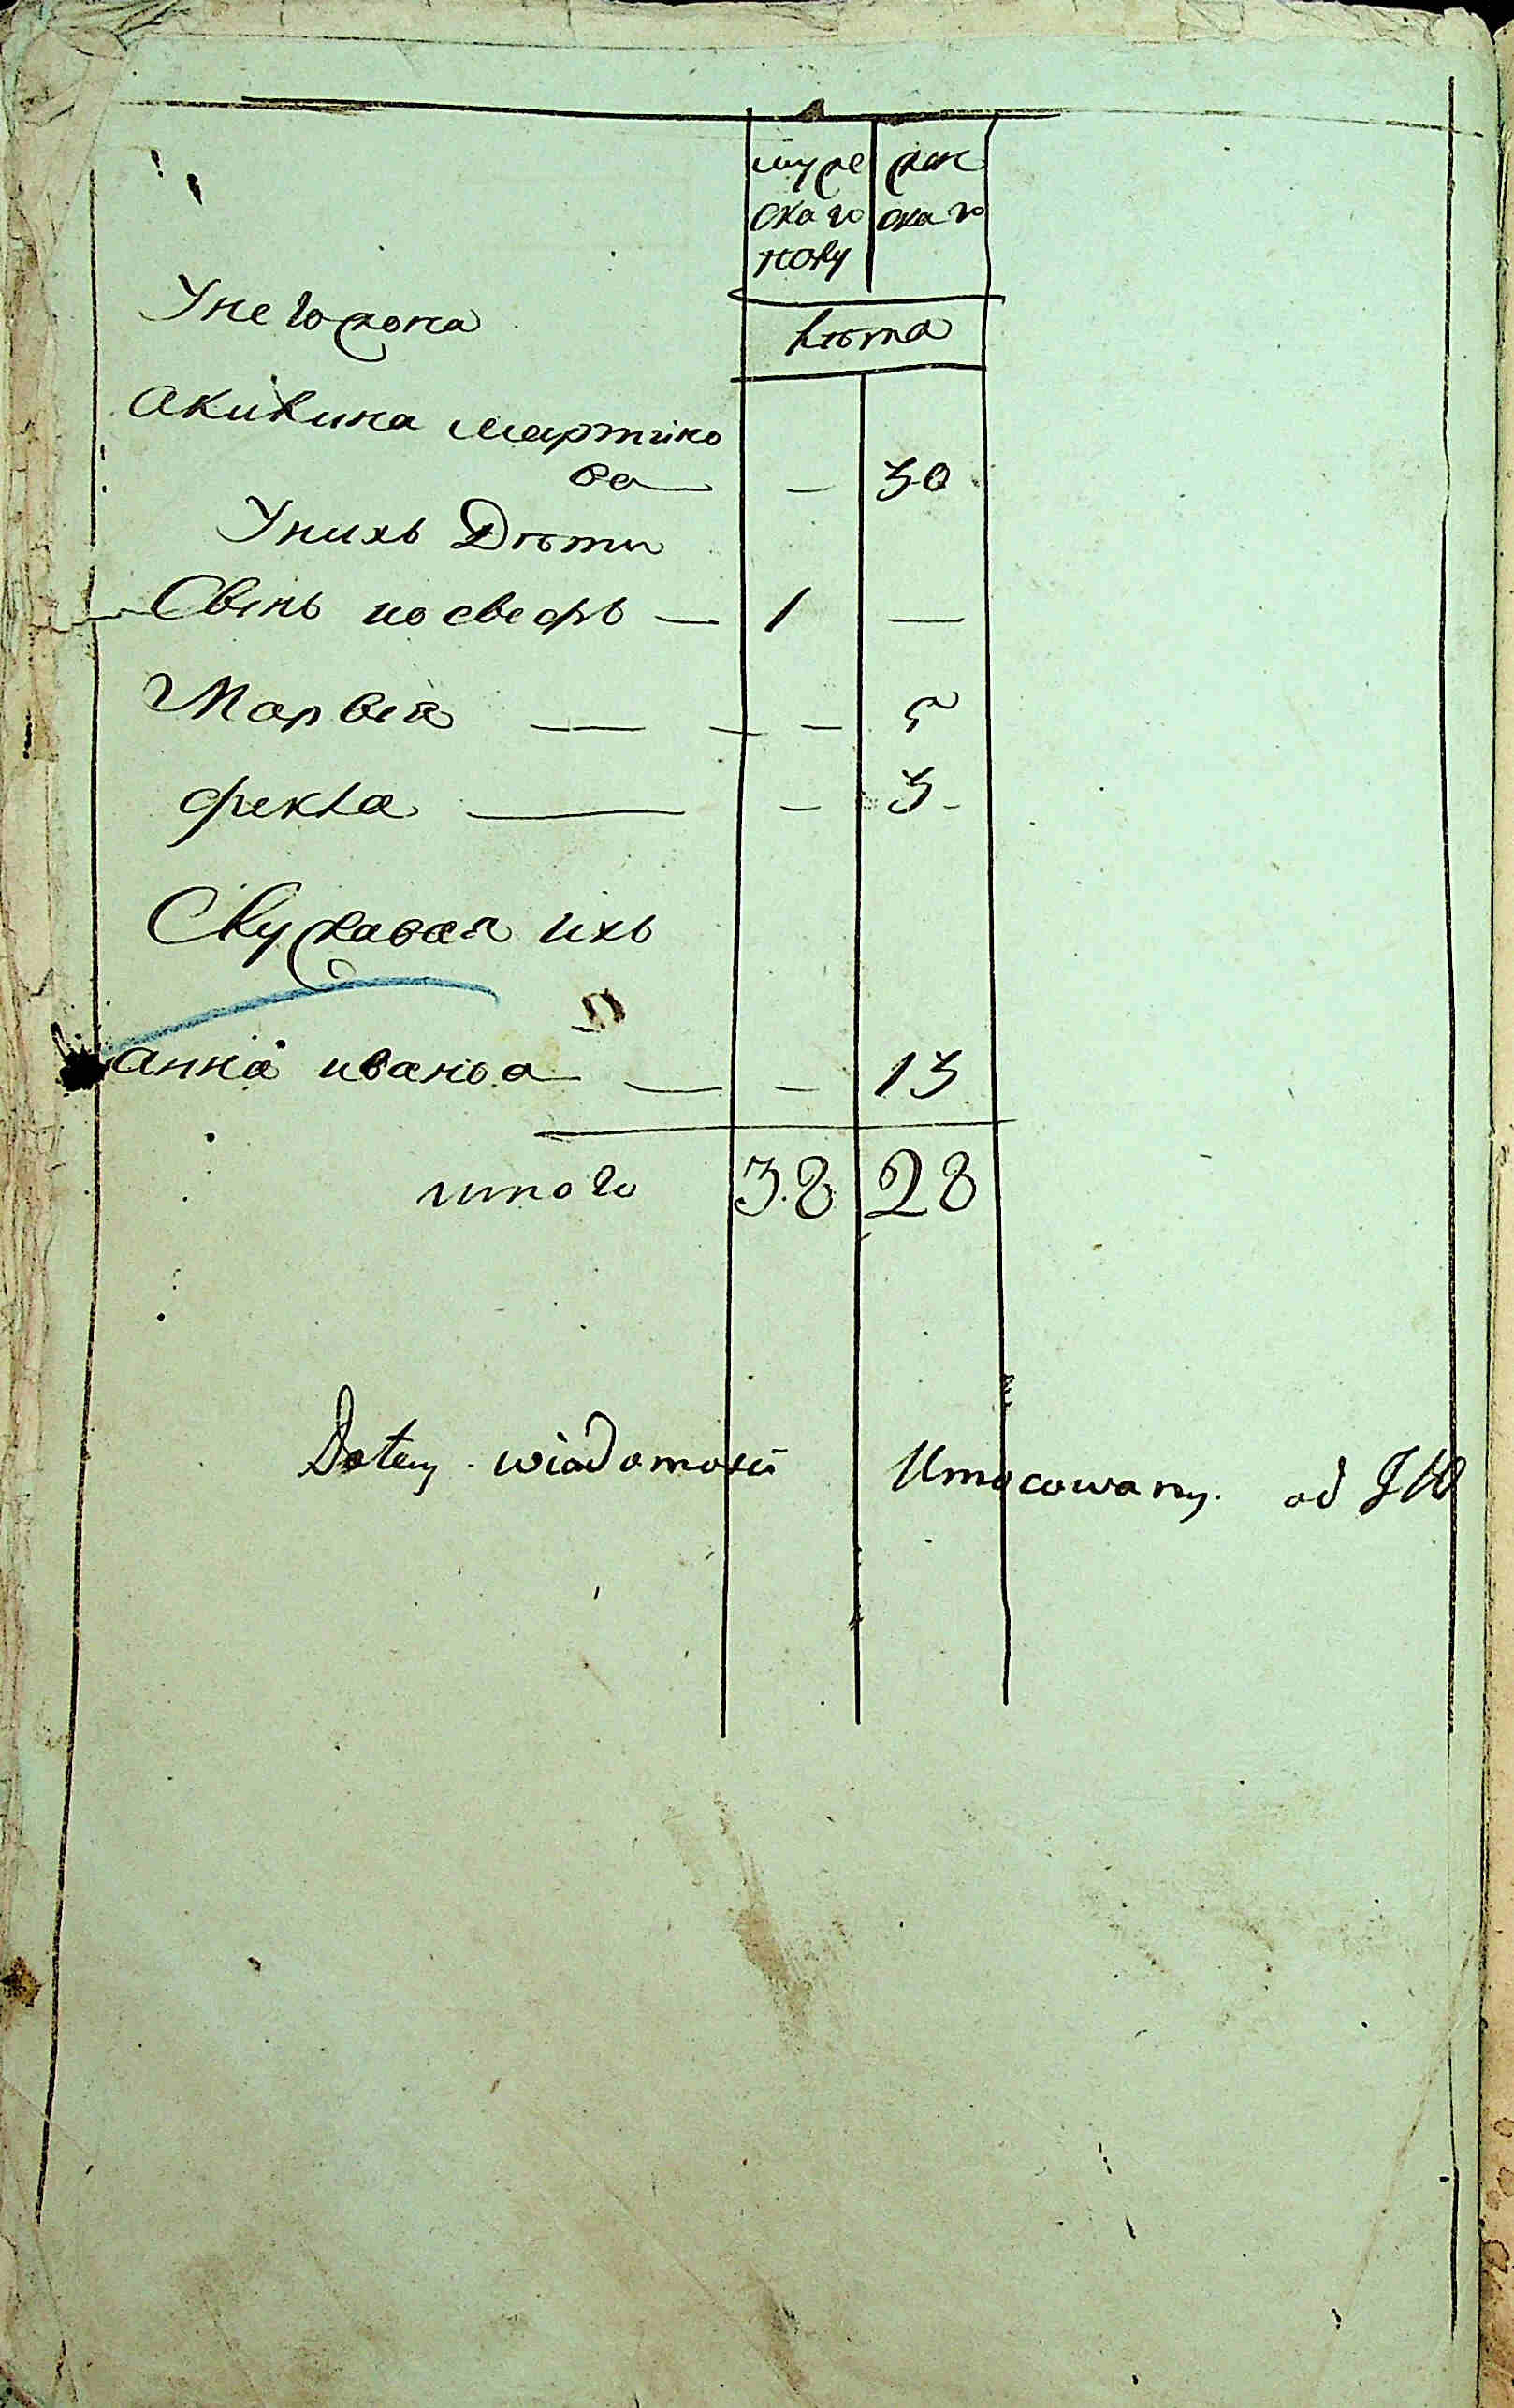 муже жен
скаго скаго
полу
Унего жона
лѣта
Акилина мартино
ва — — 30
Унихъ Дѣти
Свинъ иосвефъ — 1 —
Марвия — — — 5
фекла — — 3 -
Служавая ихъ
анна иванова — — 13
итого 38 28
Do tey wiadomosci Umocowany od JW